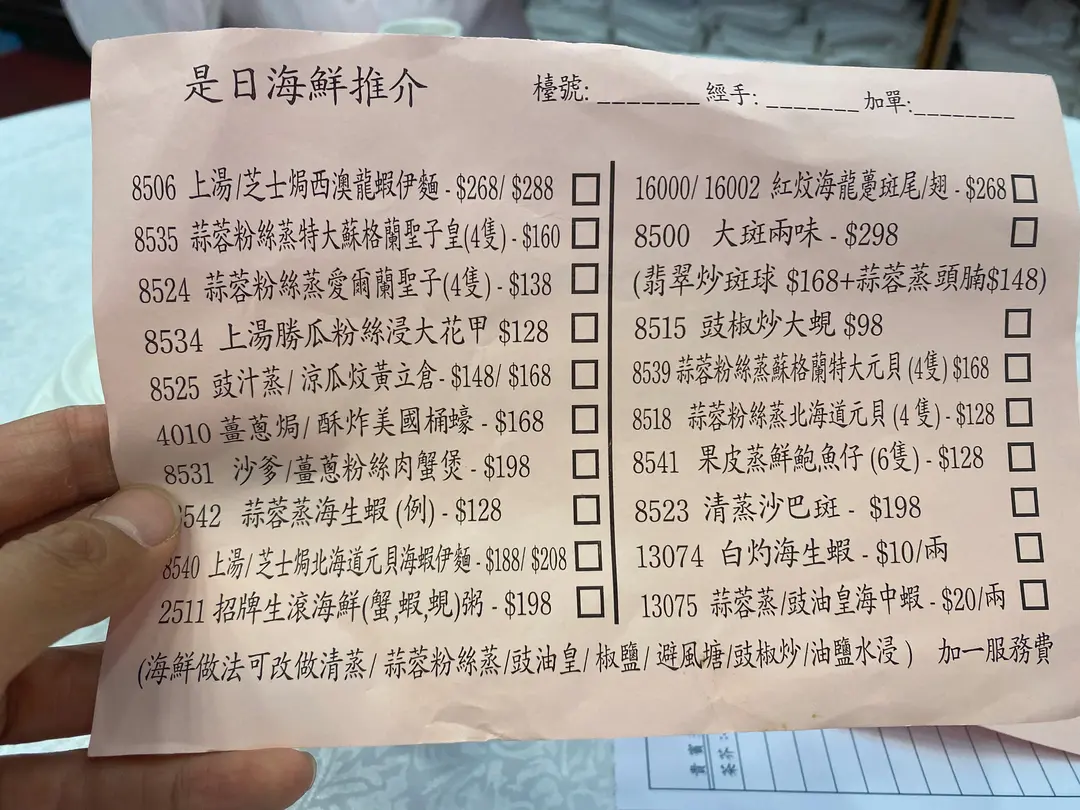 是日海鮮推介
檯號: ________ 經手: _______ 加單:________
8506 上湯/芝士焗西澳龍蝦伊麵 - $268/ $288 □
8535 蒜蓉粉絲蒸特大蘇格蘭聖子皇(4隻) - $160 □
8524 蒜蓉粉絲蒸愛爾蘭聖子(4隻) - $138 □
8534 上湯勝瓜粉絲浸大花甲 $128 □
8525 豉汁蒸/ 涼瓜炆黃立倉- $148/ $168 □
4010 薑蔥焗/ 酥炸美國桶蠔 - $168 □
8531 沙爹/薑蔥粉絲肉蟹煲 - $198 □
8542 蒜蓉蒸海生蝦 (例) - $128 □
8540 上湯/芝士焗北海道元貝海蝦伊麵 - $188/ $208 □
2511 招牌生滾海鮮(蟹,蝦,蜆)粥 - $198 □
16000/ 16002 紅炆海龍躉斑尾/翅 - $268 □
8500 大斑兩味 - $298 □
(翡翠炒斑球 $168+蒜蓉蒸頭腩$148)
8515 豉椒炒大蜆 $98 □
8539 蒜蓉粉絲蒸蘇格蘭特大元貝 (4隻) $168 □
8518 蒜蓉粉絲蒸北海道元貝 (4 隻) - $128 □
8541 果皮蒸鮮鮑魚仔 (6隻) - $128 □
8523 清蒸沙巴斑 - $198 □
13074 白灼海生蝦 - $10/兩 □
13075 蒜蓉蒸/豉油皇海中蝦 - $20/兩 □
(海鮮做法可改做清蒸/ 蒜蓉粉絲蒸/豉油皇/ 椒鹽/ 避風塘/豉椒炒/油鹽水浸 ) 加一服務費
貴賓:
茶芥: